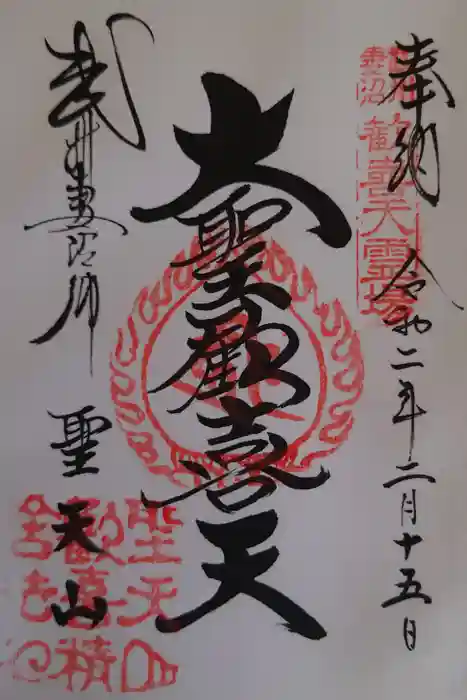 奉納 令和二年二月十五日
武州妻沼 歓喜天霊場
大聖歓喜天
武州妻沼郷
聖天山
聖天山歓喜精舎